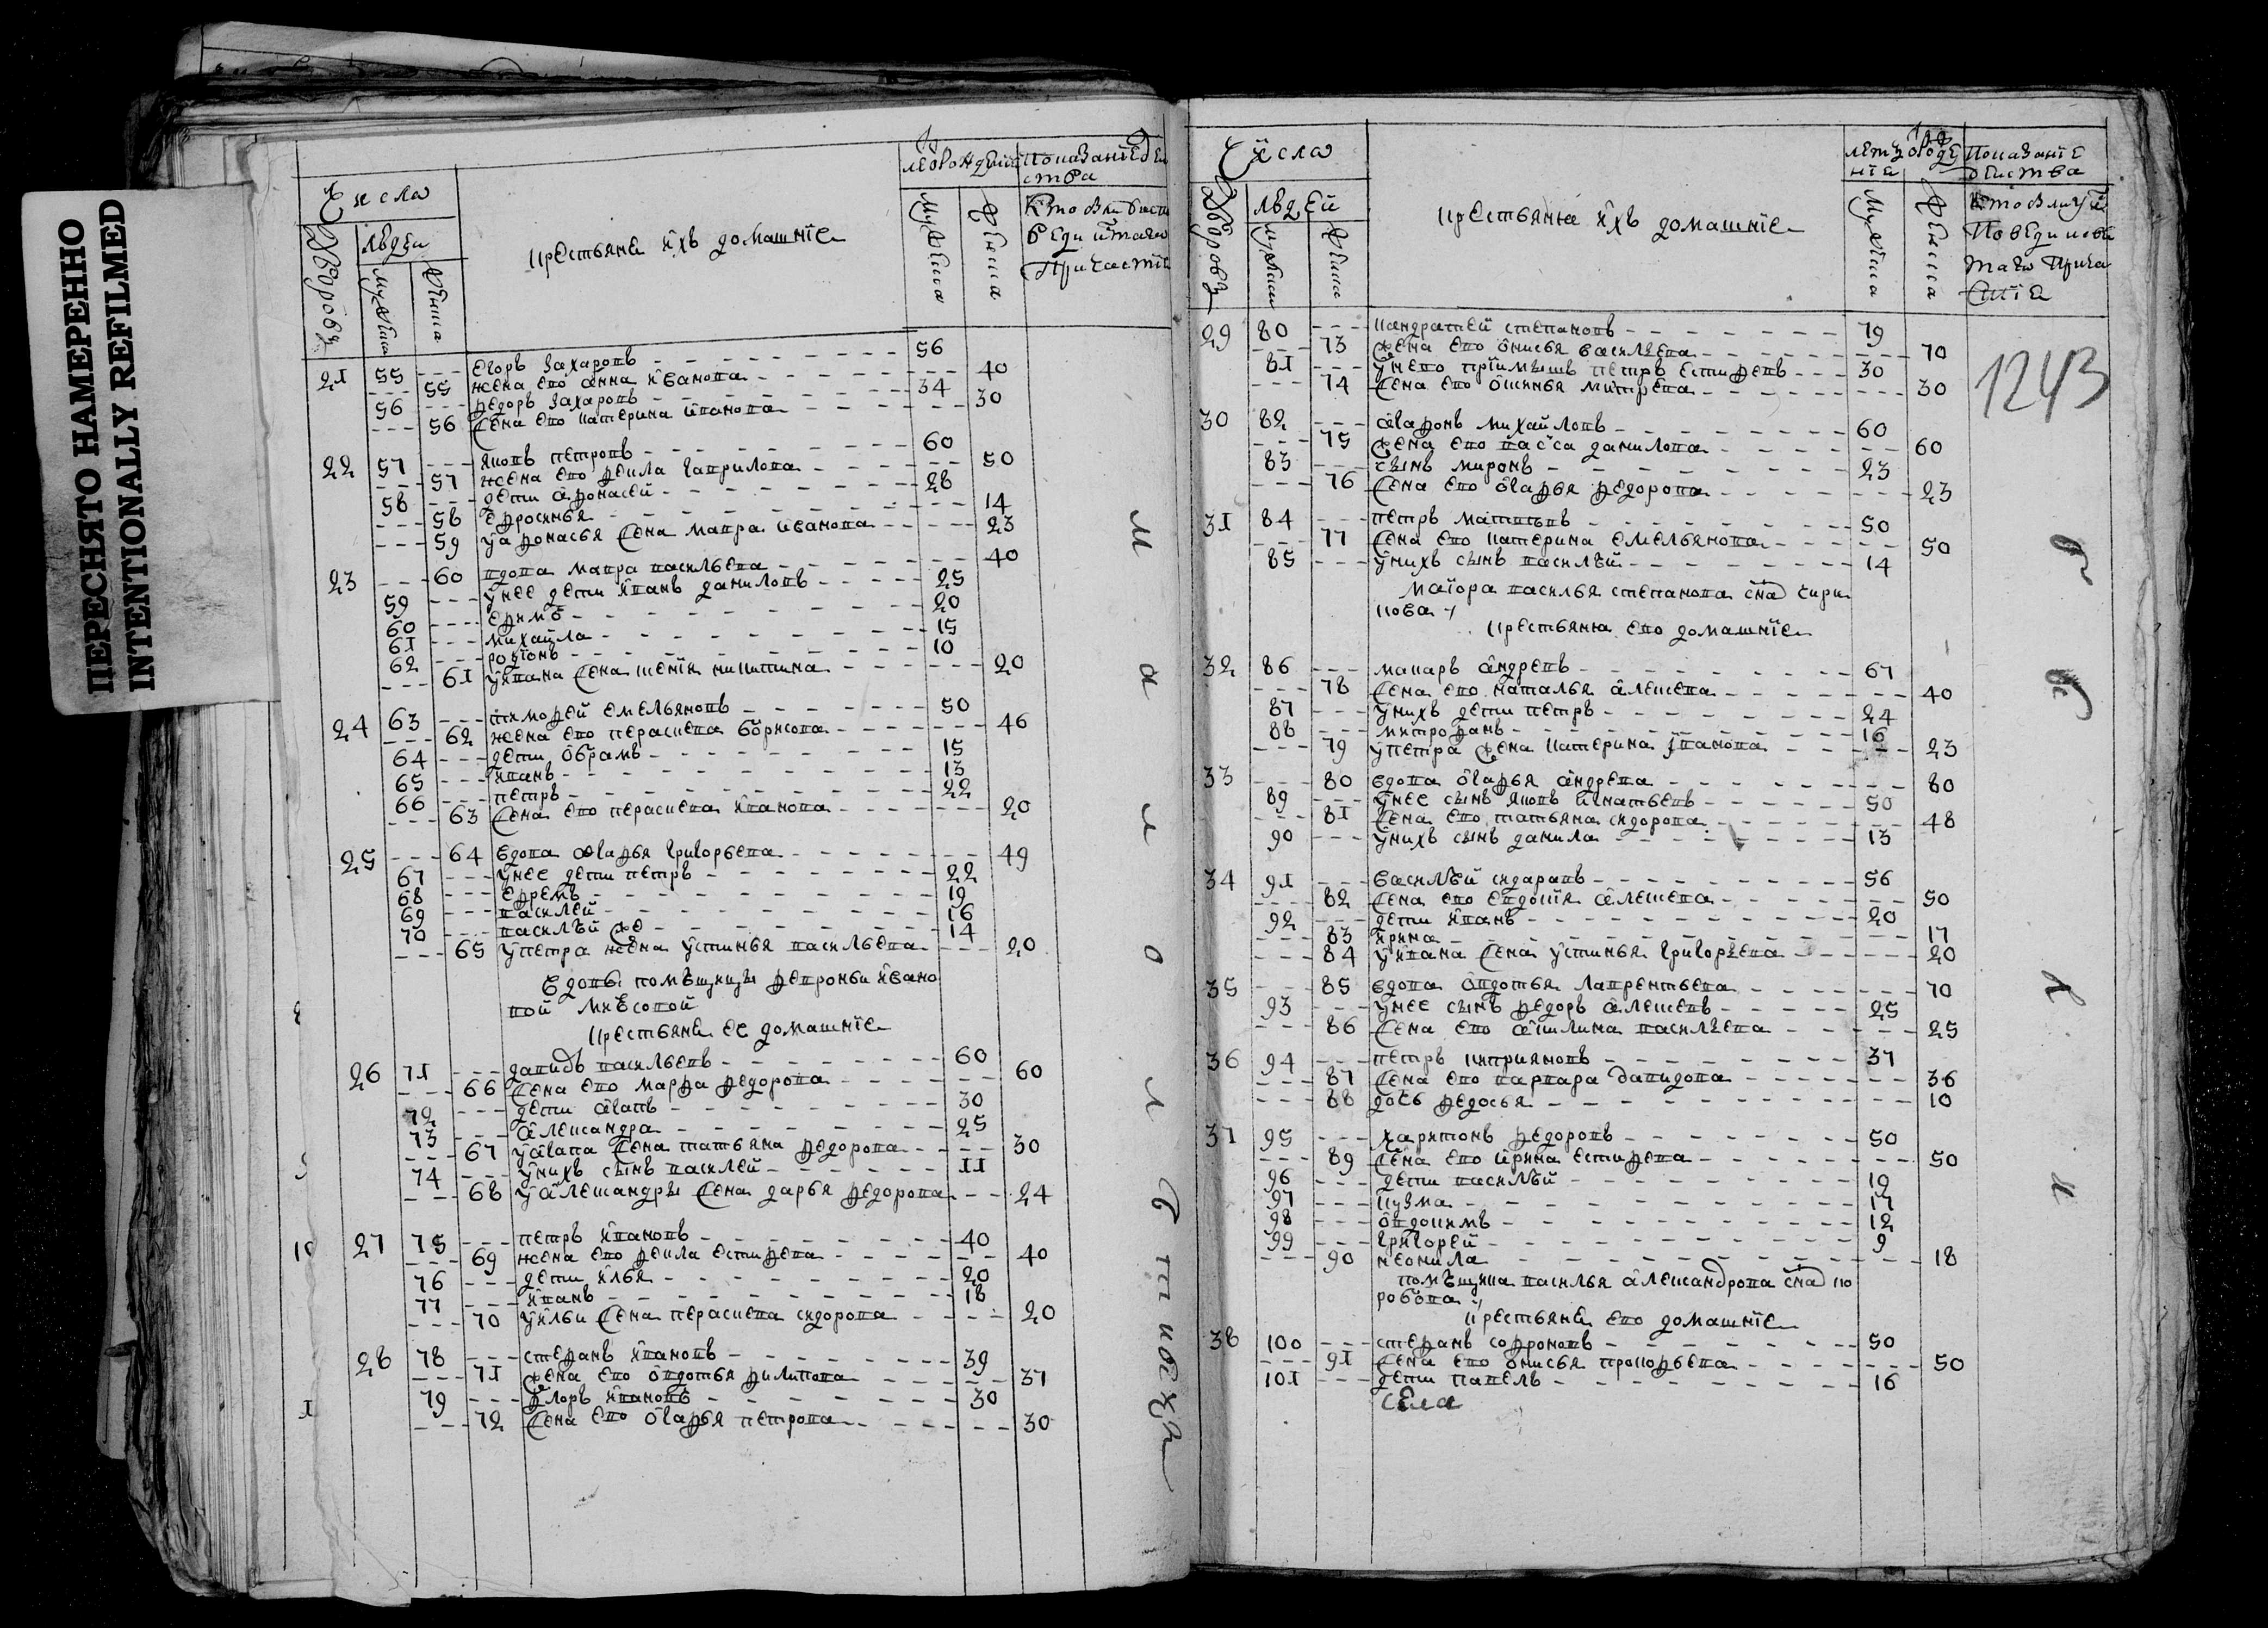 ПЕРЕСНЯТО НАМЕРЕННО
INTENTIONALLY REFILMED
Числа
людеи
Дворовъ
Мужеска
Женска
крестьяне ихъ домашние
Мужеска
Женска
Показание деи
ства
21 55 --- егоръ захаровъ 56
--- 55 жена ево анна иванова --- 40
56 --- федоръ захаровъ 34
--- 56 жена ево катерина иванова --- 30
22 57 --- яковъ петровъ 60
--- 57 жена ево фекла гаврилова --- 50
58 --- дети афонасей 28
--- 58 ефросинья --- 14
--- 59 уафонасья жена мавра иванова --- 23
23 --- 60 вдова мавра васильева --- 40
59 --- унее дети иванъ даниловъ 25
60 --- ефимъ 20
61 --- михайла 15
62 --- родионъ 10
--- 61 уивана жена ксения никитина --- 20
24 63 --- тимофей емельяновъ 50
--- 62 жена ево парасковя борисова --- 46
64 --- дети обрамъ 15
65 --- иванъ 13
66 --- петръ 22
--- 63 жена ево парасковя иванова --- 20
25 --- 64 вдова агафья григорьева --- 49
67 --- унее дети петръ 22
68 --- ефремъ 19
69 --- василей 16
70 --- василъй же 14
--- 65 упетра жена устинья васильева --- 20
вдовы помъщицы февроньи ивано
вой
крестьяне ее домашние
26 71 --- давидъ васильевъ 60
--- 66 жена ево марфа федорова --- 60
72 --- дети агапъ 30
73 --- александра 25
--- 67 уагапа жена татьяна федорова --- 30
74 --- унихъ сынъ василей 11
--- 68 уалександры жена дарья федорова --- 24
27 75 --- петръ ивановъ 40
--- 69 жена ево фекла естифева --- 40
76 --- дети илья 20
77 --- иванъ 18
--- 70 уильи жена парасковя сидорова --- 20
28 78 --- стефанъ ивановъ 39
--- 71 жена ево овдотья филипова --- 37
79 --- флоръ ивановъ 30
--- 72 жена ево огафья петрова --- 30
Числа
людей
Дворовъ
Мужеска
Женска
крестьяна ихъ домашние
летъ отрожде
ния
Мужеска
Женска
Показание
деиства
1243
29 80 --- кандратей степановъ 79
--- 73 жена ево онисья васильева --- 70
81 --- унево приимышъ петръ естифевъ 30
--- 74 жена ево митрева --- 30
30 82 --- агафонъ михайловъ 60
--- 75 жена ево васса данилова --- 60
83 --- сынъ миронъ 23
--- 76 жена ево огафья федорова --- 23
31 84 --- петръ матвъевъ 50
--- 77 жена ево катерина емельянова --- 50
85 --- унихъ сынъ василъй 14
маиора василья степанова сна чири
кова
крестьяна ево домашние
32 86 --- макаръ андревъ 67
--- 78 жена ево наталья алексева --- 40
87 --- унихъ дети петръ 24
88 --- митрофанъ 16
--- 79 упетра жена катерина иванова --- 23
33 --- 80 вдова огафья андрева --- 80
89 --- унее сынъ яковъ игнатьевъ 50
--- 81 жена ево татьяна сидорова --- 48
90 --- унихъ сынъ данила 13
34 91 --- василъй сидаравъ 56
--- 82 жена ево евдокия алексева --- 50
92 --- дети иванъ 20
--- 83 ирина --- 17
--- 84 уивана жена устинья григорьева --- 20
35 --- 85 вдова овдотья лаврентьева --- 70
93 --- унее сынъ федоръ алексевъ 25
--- 86 жена ево акилина васильева --- 25
36 94 --- петръ киприановъ 37
--- 87 жена ево варвара давидова --- 36
--- 88 дочь федосья --- 10
37 95 --- харитонъ федоровъ 50
--- 89 жена ево ирина естифева --- 50
96 --- дети василъй 19
97 --- кузма 17
98 --- овдокимъ 12
99 --- григорей 9
--- 90 неонила --- 18
помъщика василья александрова сна ко
робова
крестьяне ево домашние
38 100 --- стефанъ софроновъ 50
--- 91 жена ево онисья прокофьева --- 50
101 --- дети павелъ 16
села